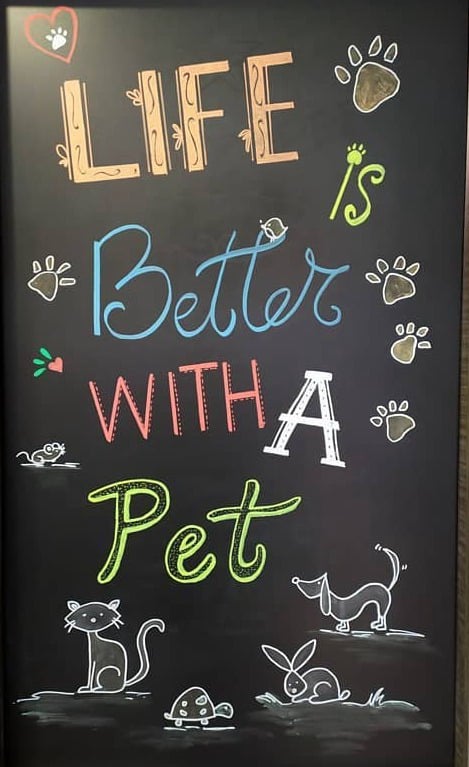 LIFE
is
Better
WITH A
Pet